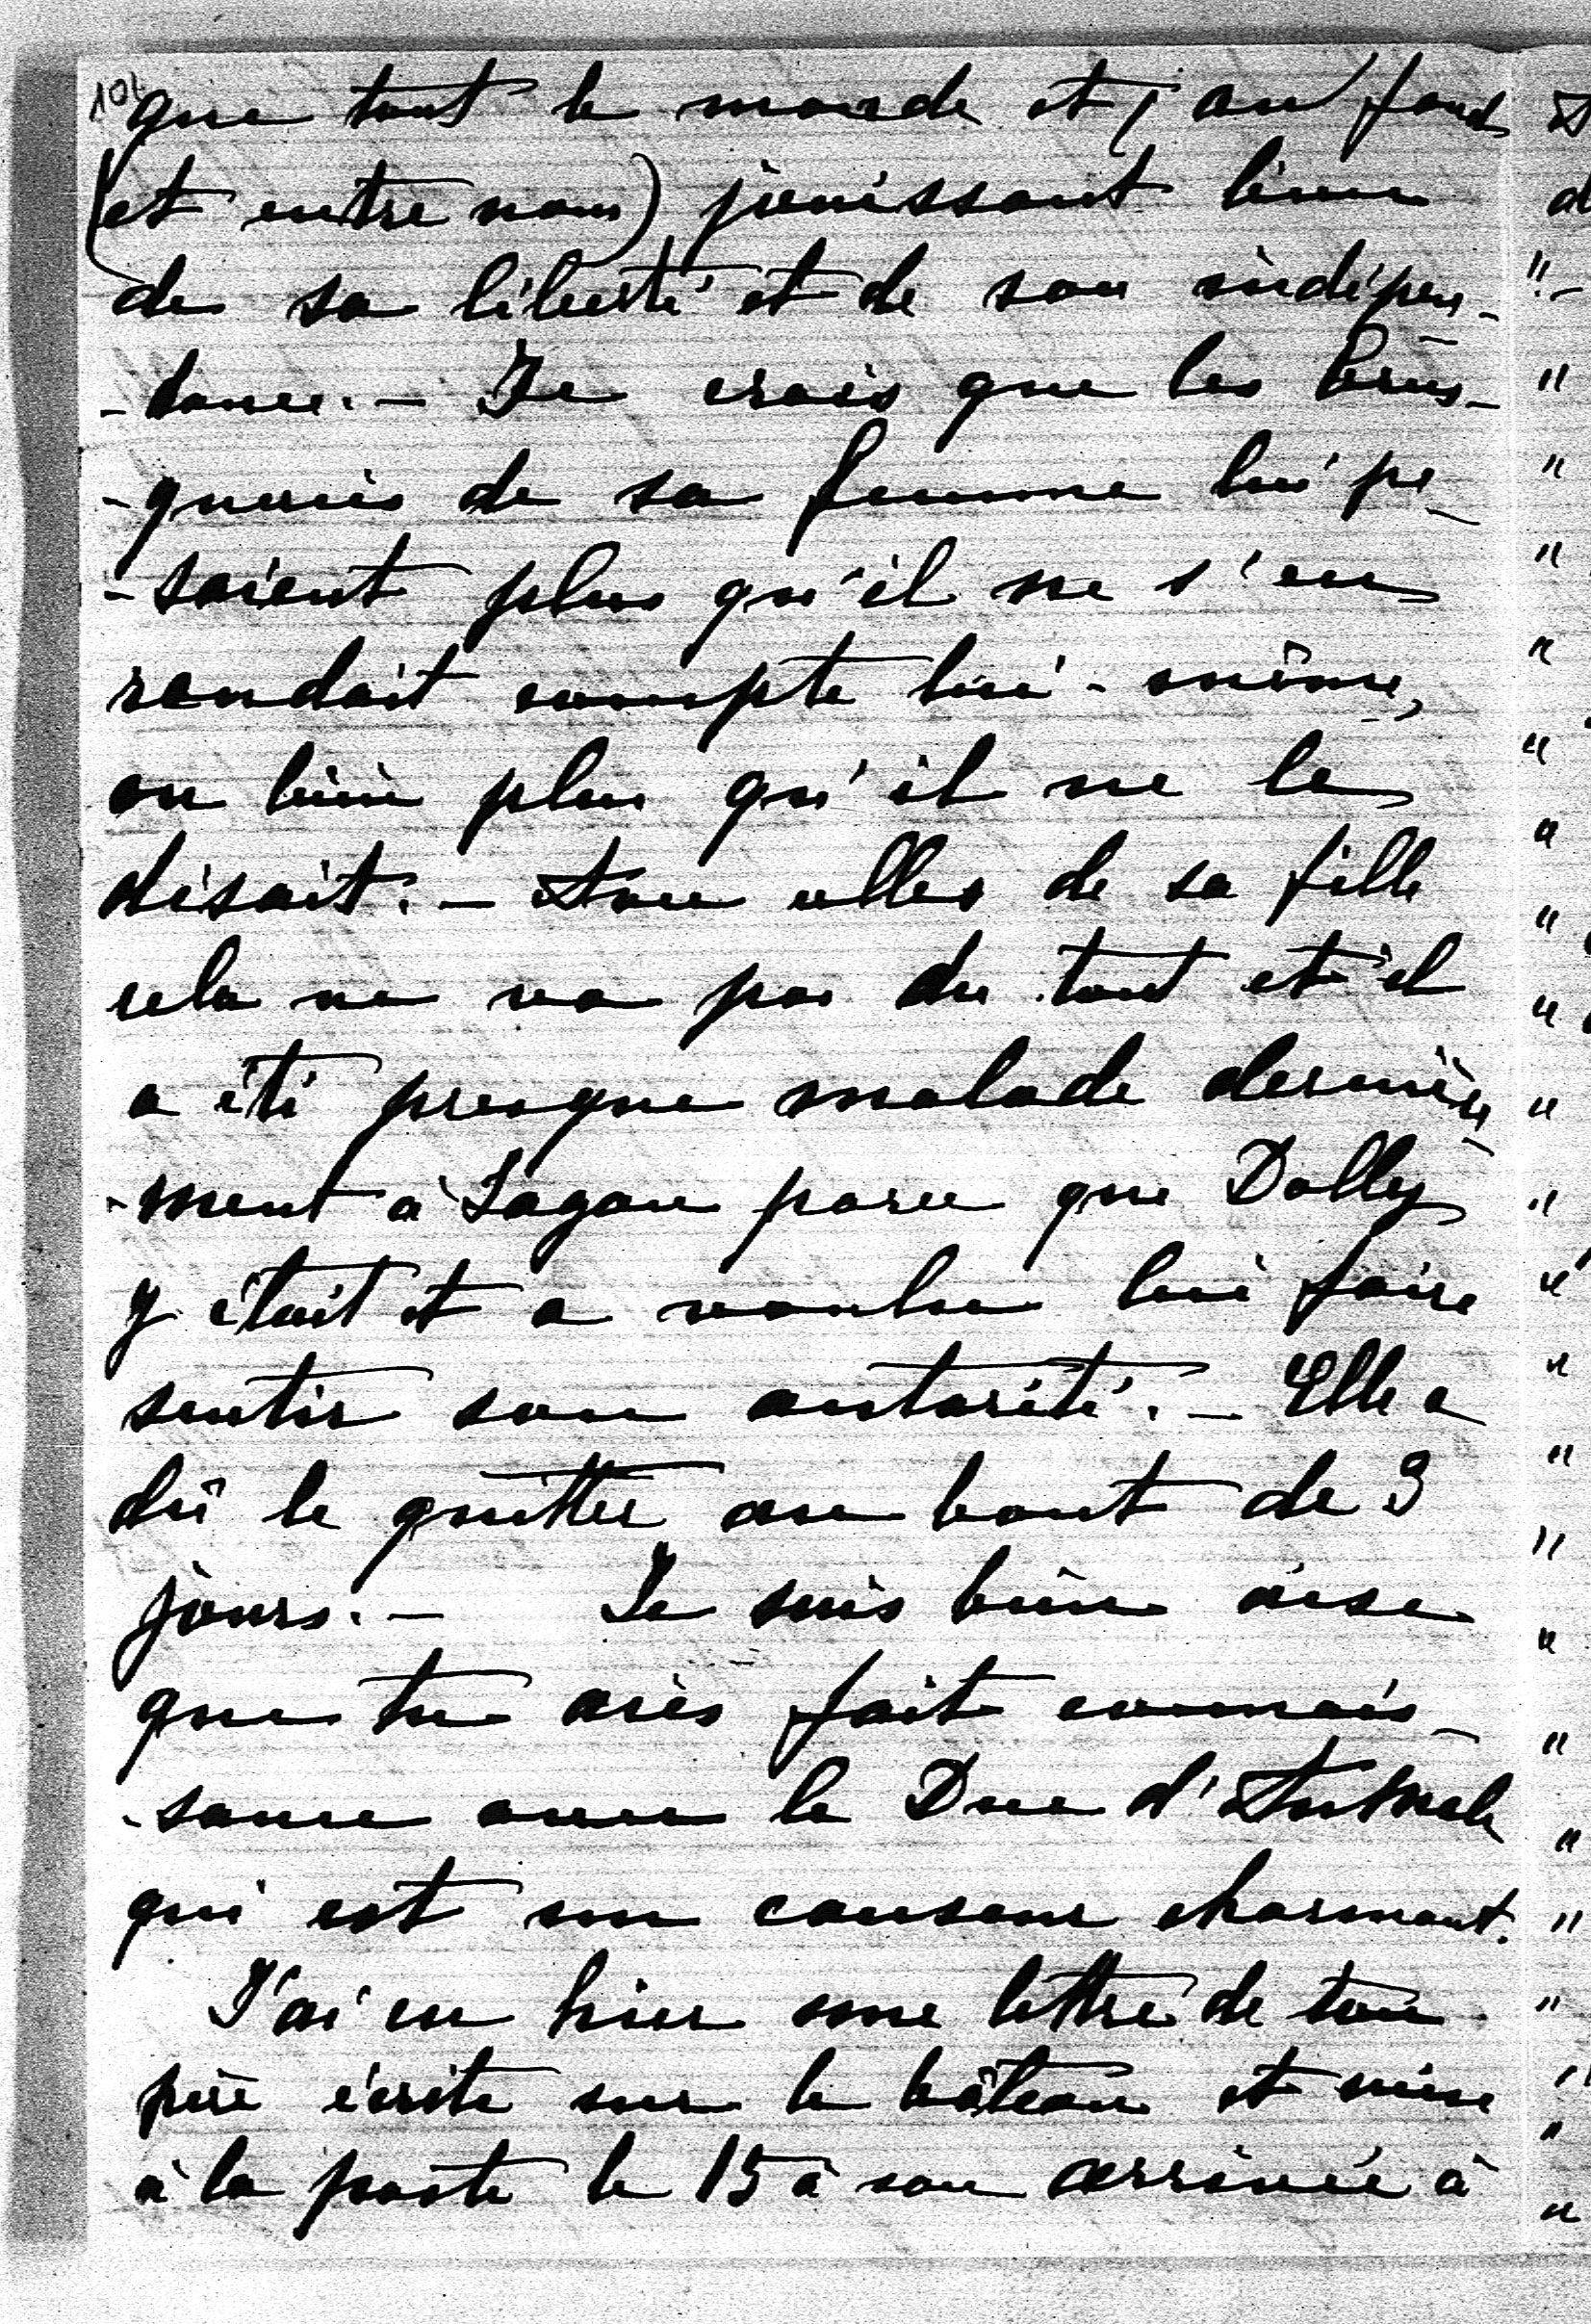 que tout le monde et, au fond
(et entre nous) jouissant bien
de sa liberté et de son indépen-
-dance. — Je crois que les brus-
-queries de sa femme lui pe-
-saient plus qu'il ne s'en
rendait compte lui-même,
ou bien plus qu'il ne le
disait. — Avec celles de sa fille
cela ne va pas du tout et il
a été presque malade dernière-
-ment à Sagan parce que Dolly
y était et a voulu lui faire
sentir son autorité. — Elle a
dû le quitter au bout de 3
jours. — Je suis bien aise
que tu aies fait connais-
-sance avec le Duc d'Aumale
qui est un causeur charmant.
J'ai eu hier une lettre de ton
père écrite sur le bâteau et mise
à la poste le 15 à son arrivée à